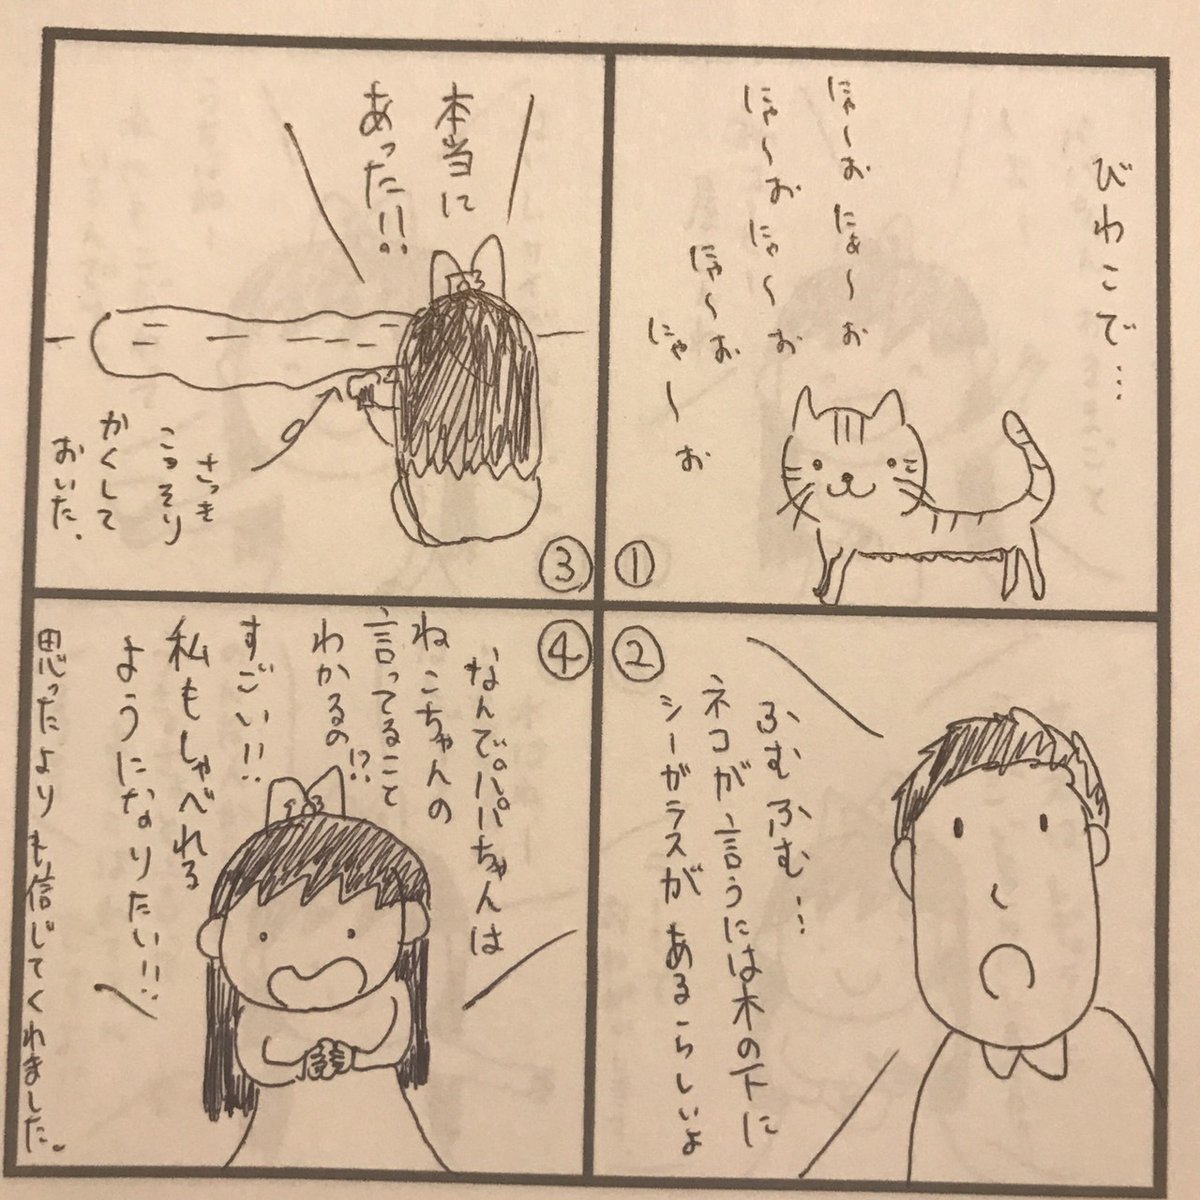 びわこで…
にゃ〜お にゃ〜お
にゃ〜お にゃ〜お
にゃ〜お
にゃ〜お
①
②
ふむふむ…
ネコが言うには木の下に
シーガラスがあるらしいよ
本当に
あった!!
さっき
こっそり
かくして
おいた。
③
④
なんでパパちゃんは
ねこちゃんの
言ってること
わかるの!?
すごい!!
私もしゃべれる
ようになりたい!!
思ったよりも信じてくれました。